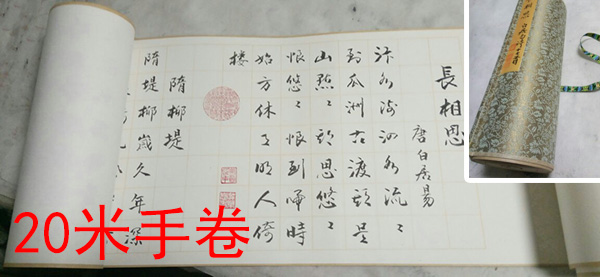 長相思
唐白居易
汴水流泗水流〻
到瓜洲古渡頭吴
山點〻愁思悠〻
恨悠〻恨到歸時
始方休月明人倚
楼
隋柳堤
隋堤柳歲久年深
20米手卷